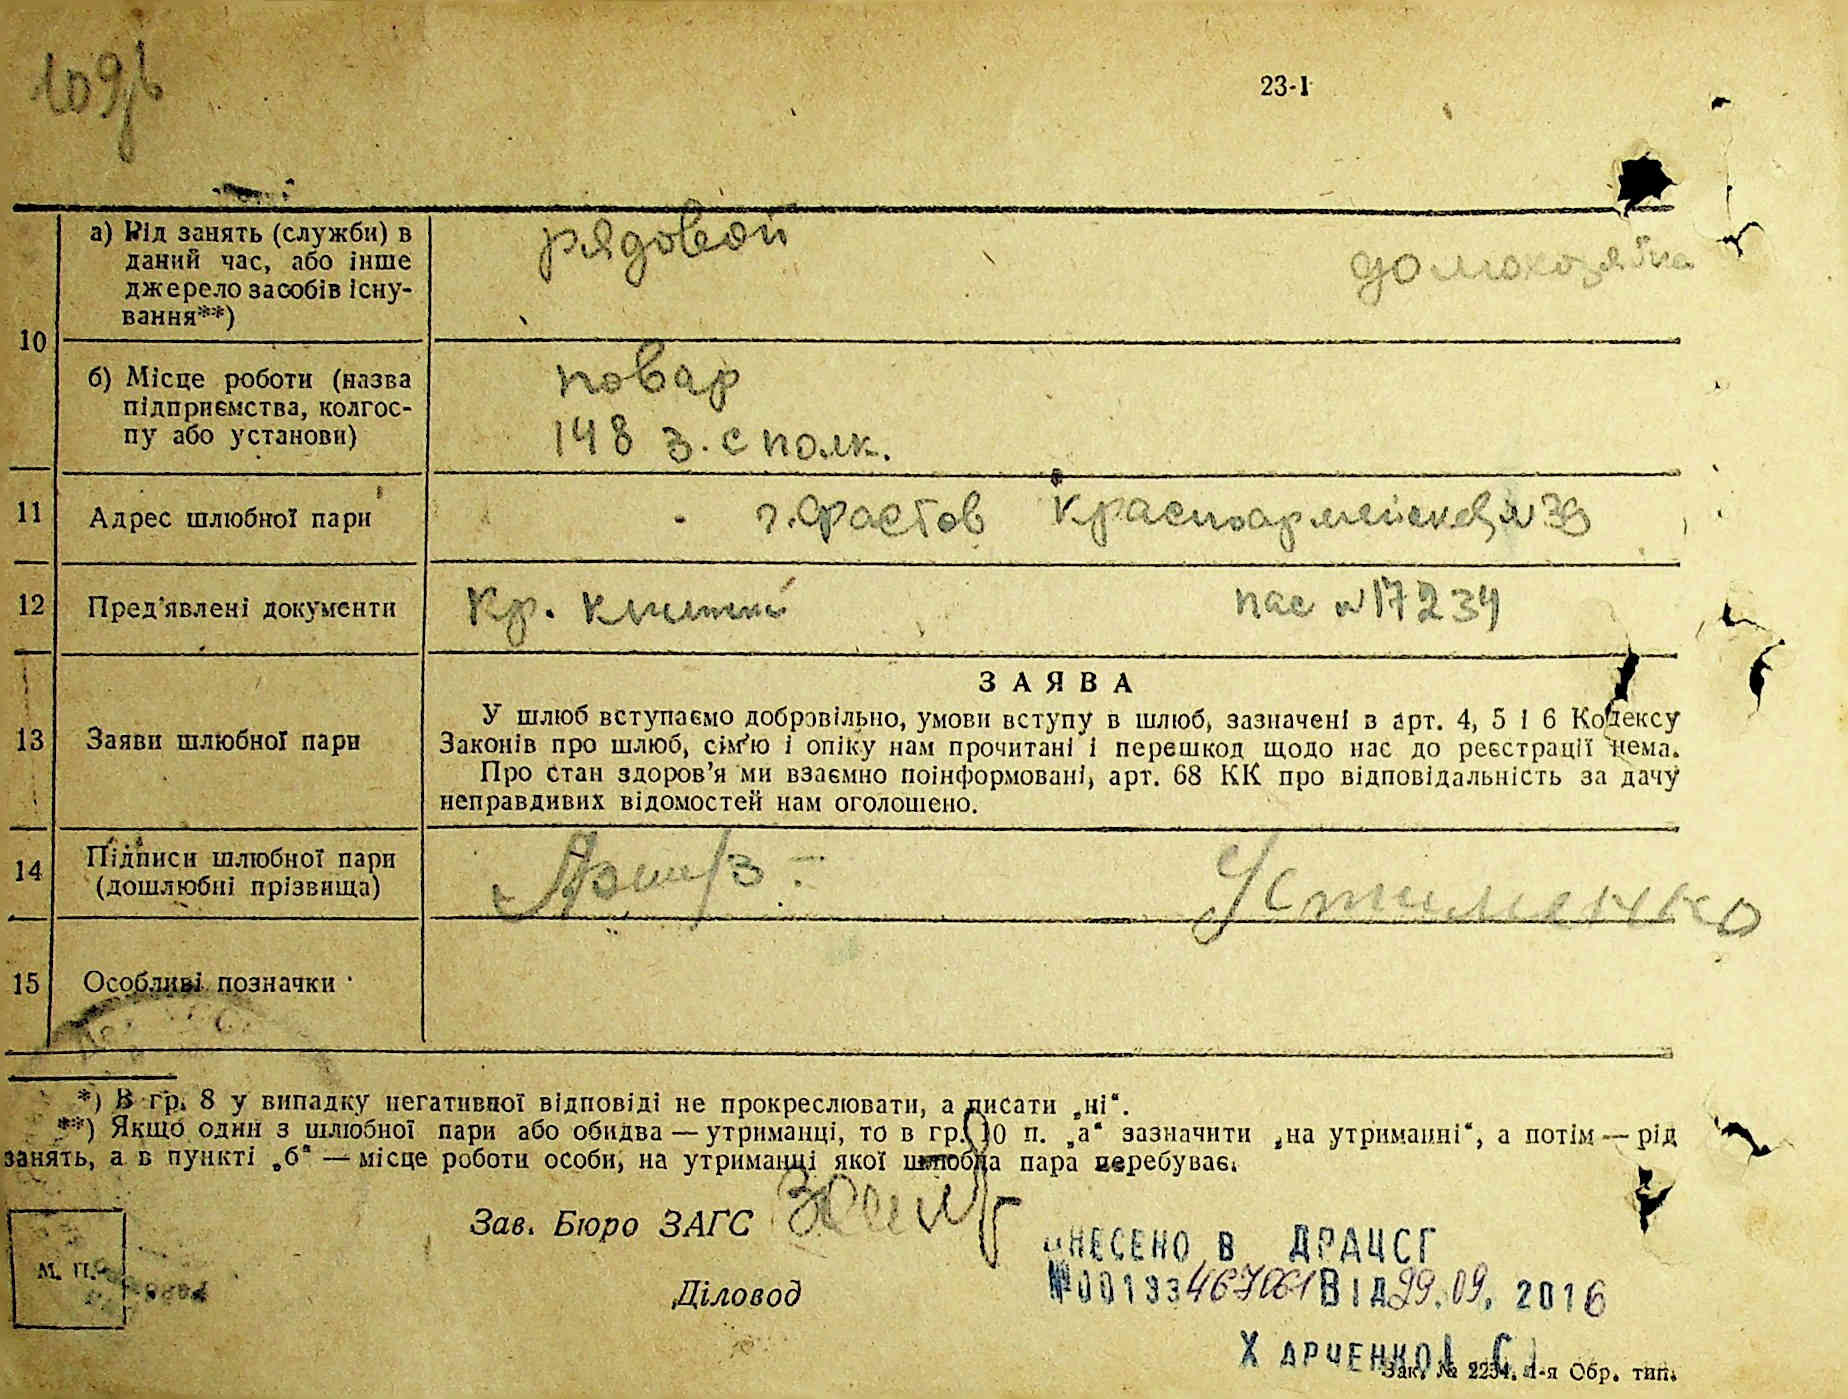 109
23-1
10
а) Рід занять (служби) в
даний час, або інше
джерело засобів існу-
вання**)
рядовой
домохозяйка
б) Місце роботи (назва
підприємства, колгос-
пу або установи)
повар
148 з.с полк.
11
Адрес шлюбної пари
г. Фастов Красноармейская 39
12
Пред'явлені документи
Кр. книжка
пас № 17234
13
Заяви шлюбної пари
ЗАЯВА
У шлюб вступаємо добровільно, умови вступу в шлюб, зазначені в арт. 4, 5 і 6 Кодексу
Законів про шлюб, сім'ю і опіку нам прочитані і перешкод щодо нас до реєстрації нема.
Про стан здоров'я ми взаємно поінформовані, арт. 68 КК про відповідальність за дачу
неправдивих відомостей нам оголошено.
14
Підписи шлюбної пари
(дошлюбні прізвища)
Устименко
15
Особливі позначки
*) В гр. 8 у випадку негативної відповіді не прокреслювати, а писати „ні“.
**) Якщо один з шлюбної пари або обидва — утриманці, то в гр. 10 п. „а“ зазначити „на утриманні“, а потім — рід
занять, а в пункті „б“ — місце роботи особи, на утриманці якої шлюбна пара перебуває.
Зав. Бюро ЗАГС
Діловод
М. П.
ВНЕСЕНО В ДРАЦСГ
№00133467061 ВІД 29.09. 2016
ХАРЧЕНКО І. С.
Зак. № 2234. 1-я Обр. тип.